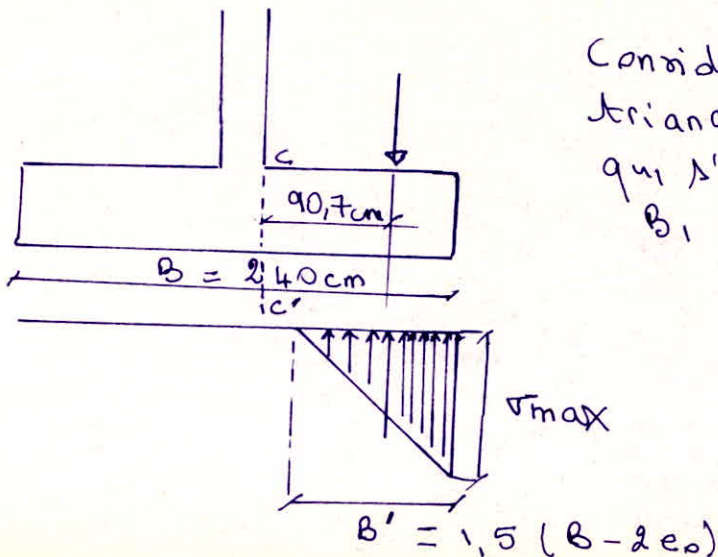 Considé
trian
qui s'
B,
C
90,7cm
B = 240cm
C'
σmax
B' = 1,5 (B - 2e₀)